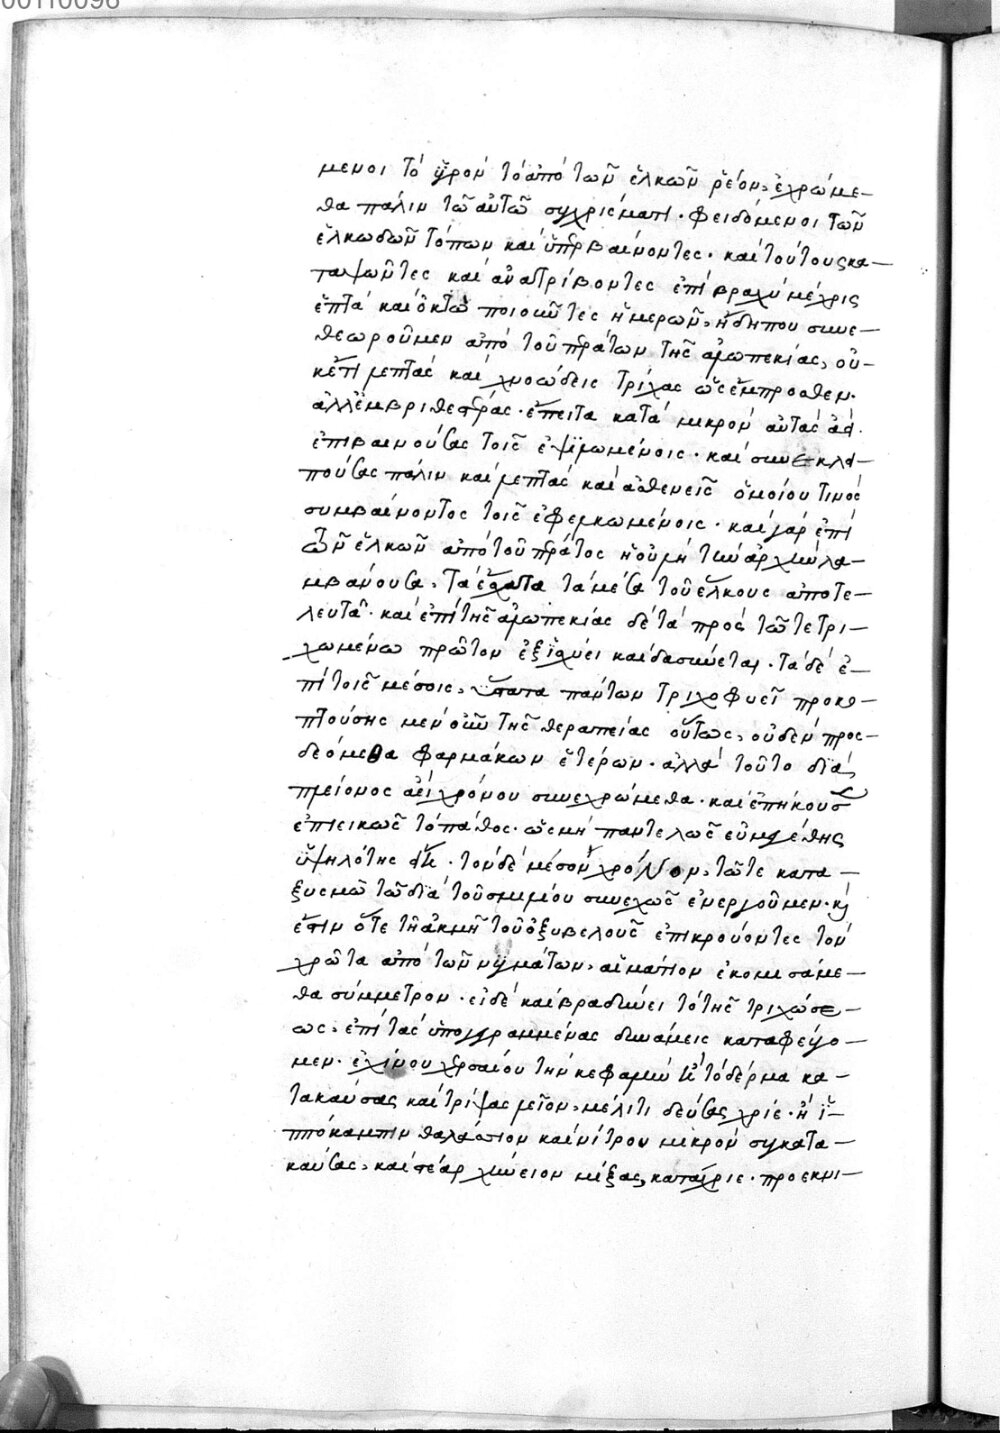 00110096
μενοι τὸ ὑγρὸν τὸ ἀπὸ τῶν ἑλκῶν ῥέον, ἐχρώμε-
θα πάλιν τῶ αὐτῶ συγχρίσματι· φειδόμενοι τῶν
ἑλκωδῶν τόπων καὶ ὑπερβαίνοντες· καὶ τούτους κα-
ταψῶντες καὶ ἀνατρίβοντες ἐπὶ βραχὺ μέχρις
ἑπτὰ καὶ ὀκτὼ ποιοῦντες ἡμερῶν, ἤδη που συνε-
θεωροῦμεν ἀπὸ τοῦ πέρατων τῆς ἀλωπεκίας, οὐ-
κέτι λεπτὰς καὶ χνοώδεις τρίχας ὡς ἔμπροσθεν·
ἀλλ' ἐμβριθεστέρας· ἔπειτα κατὰ μικρὸν αὐτὰς ἀεὶ
ἐπιβαινούσας τοῖς ἐψιλωμένοις· καὶ συνεκλι-
πούσας πάλιν καὶ λεπτὰς καὶ ἀσθενεῖς ὁμοίου τινὸς
συμβαίνοντος τοῖς ἐφελκωμένοις· καὶ γὰρ ἐπὶ
τῶν ἑλκῶν ἀπὸ τοῦ πέρατος ἡ οὐλὴ τὴν ἀρχὴν λα-
μβάνουσα, τὰ ἔσχατα τὰ μέσα τοῦ ἕλκους ἀποτε-
λευτᾶ· καὶ ἐπὶ τῆς ἀλωπεκίας δὲ τὰ πρὸς τῶ τετρι-
χωμένω πρῶτον ἐξισχύει καὶ δασύνεται· τὰ δὲ ἐ-
πὶ τοῖς μέσοις, ὕστατα πάντων τριχοφυεῖ προκο-
πτούσης μὲν οὖν τῆς θεραπείας οὕτως, οὐδὲν προς-
δεόμεθα φαρμάκων ἑτέρων· ἀλλὰ τοῦτο διὰ
πλείονος ἀεὶ χρόνου συνεχρώμεθα· καὶ ἐπήκους
ἐπιεικῶς τὸ πάθος· ὡς μὴ παντελῶς
τὸν δὲ μέσον χρόνον, τῶτε κατα-
ξυσμῶ τῶ διὰ τοῦ σμιλίου συνεχῶς ἐνεργοῦμεν· κὶ
ἔστιν ὅτε τῆ ἀκμῆ τοῦ ὀξυβελοῦς ἐπικρούοντες τὸν
χρῶτα ἀπὸ τῶν νυγμάτων, αἱμάτιον ἐκομισάμε-
θα σύμμετρον· εἰ δὲ καὶ βραδύνει τὸ τῆς τριχώσε-
ως, ἐπὶ τὰς ὑπογεγραμμένας δυνάμεις καταφεύγο-
μεν· ἐχίνου χερσαίου τὴν κεφαλὴν κὶ τὸ δέρμα κα-
τακαύσας καὶ τρίψας λεῖον, μέλιτι δεύσας χρίε· ἢ ἱ-
ππόκαμπον θαλάσσιον καὶ νίτρου μικρὸν συγκατα-
καύσας, καὶ στέαρ χήνειον μίξας, κατάχριε· προεκνι-